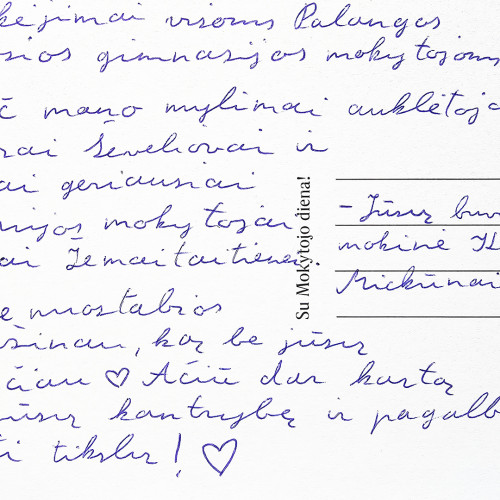 kėjimai visoms Palangos
sios gimnazijos mokytojoms
č mano mylimai auklėtoja
rai Ševeliovai ir
ai geriausiai
nijos mokytojai
ai Žemaitaitienei.
e nuostabios
šinau, ką be jūsų
čiau ♡ Ačiū dar kartą
jūsų kantrybę ir pagalb
ti tikslų! ♡
Su Mokytojo diena!
- Jūsų buv
mokinė
Mickūnai